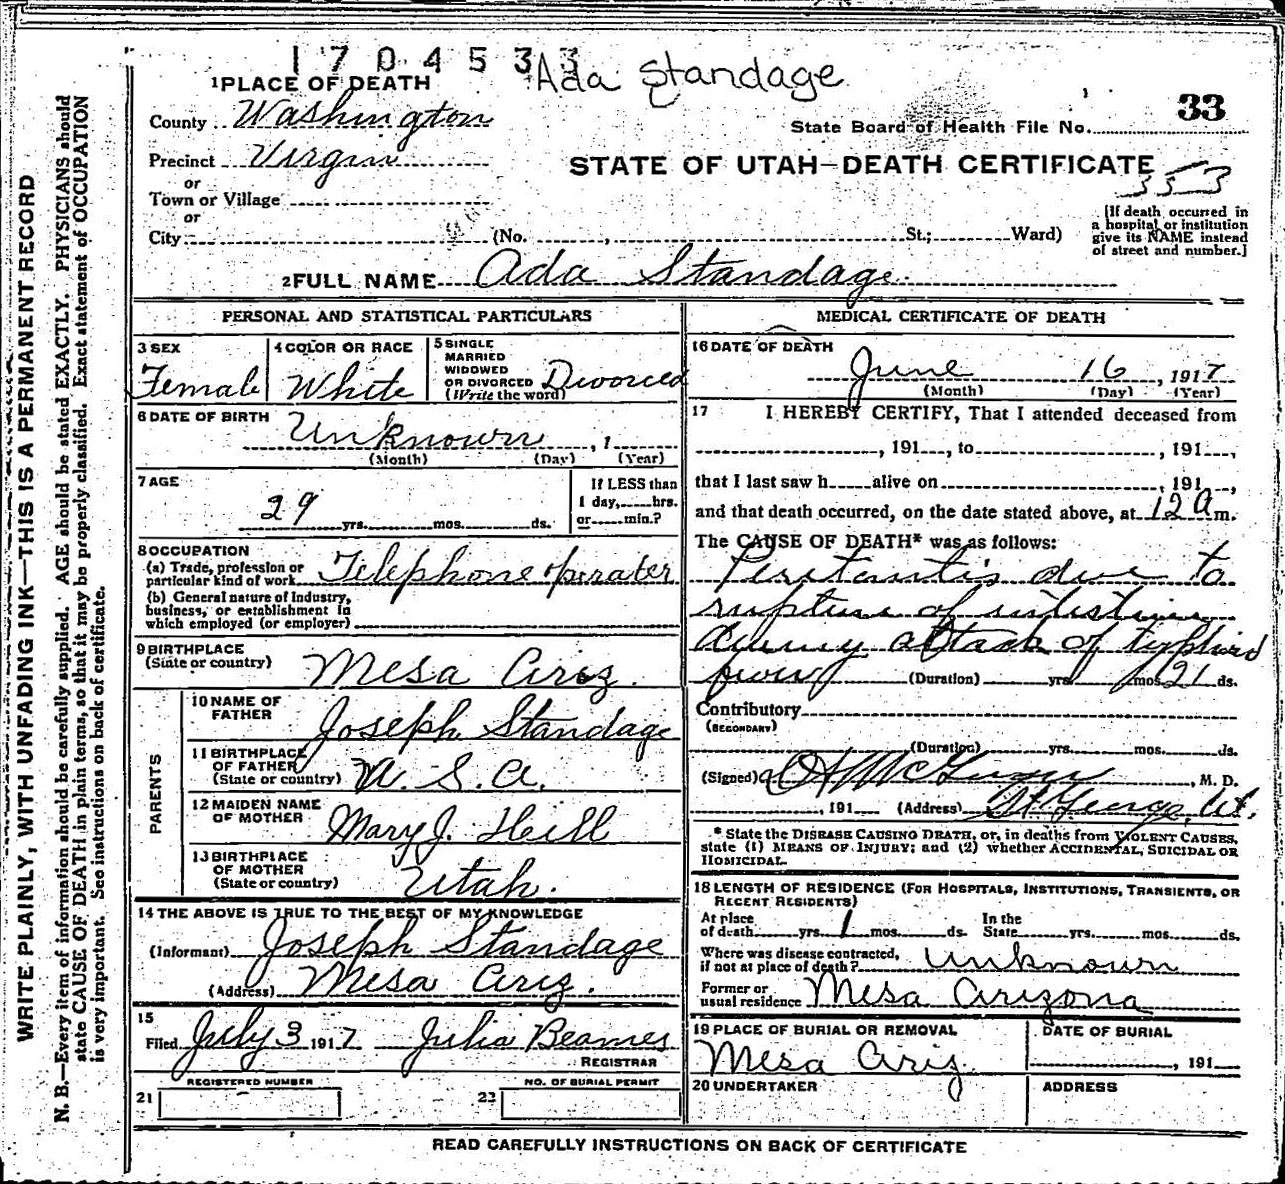 170453 3
Ada Standage
1 PLACE OF DEATH
33
County Washington
State Board of Health File No.
Precinct Virgin
STATE OF UTAH—DEATH CERTIFICATE
353
or
Town or Village
or
City (No. , St.; Ward)
[If death occurred in
a hospital or institution
give its NAME instead
of street and number.]
2 FULL NAME Ada Standage.
PERSONAL AND STATISTICAL PARTICULARS
3 SEX
Female
4 COLOR OR RACE
White
5 SINGLE
MARRIED
WIDOWED
OR DIVORCED Divorced
(Write the word)
6 DATE OF BIRTH
Unknown , 1
(Month) (Day) (Year)
7 AGE
29 yrs. mos. ds.
If LESS than
1 day, hrs.
or min.?
8 OCCUPATION
(a) Trade, profession or
particular kind of work Telephone operater
(b) General nature of Industry,
business, or establishment in
which employed (or employer)
9 BIRTHPLACE
(State or country) Mesa Ariz.
PARENTS
10 NAME OF
FATHER Joseph Standage
11 BIRTHPLACE
OF FATHER
(State or country) U. S. A.
12 MAIDEN NAME
OF MOTHER Mary J.
13 BIRTHPLACE
OF MOTHER
(State or country) Utah.
14 THE ABOVE IS TRUE TO THE BEST OF MY KNOWLEDGE
(Informant) Joseph Standage
(Address) Mesa Ariz.
15
Filed July 3 1917 Julia Beames
REGISTRAR
REGISTERED NUMBER
21
NO. OF BURIAL PERMIT
22
MEDICAL CERTIFICATE OF DEATH
16 DATE OF DEATH
June 16, 1917
(Month) (Day) (Year)
17 I HEREBY CERTIFY, That I attended deceased from
, 191 , to , 191 ,
that I last saw h alive on , 191 ,
and that death occurred, on the date stated above, at 12 a m.
The CAUSE OF DEATH* was as follows:
Peritonitis due to
rupture of intestine
during attack of typhoid
fever (Duration) yrs mos 21 ds.
Contributory
(SECONDARY)
(Duration) yrs. mos. ds.
(Signed) , M. D.
, 191 (Address) St George, Ut.
* State the DISEASE CAUSING DEATH, or, in deaths from VIOLENT CAUSES,
state (1) MEANS OF INJURY; and (2) whether ACCIDENTAL, SUICIDAL OR
HOMICIDAL.
18 LENGTH OF RESIDENCE (FOR HOSPITALS, INSTITUTIONS, TRANSIENTS, OR
RECENT RESIDENTS)
At place
of death yrs. 1 mos. ds.
In the
State yrs. mos. ds.
Where was disease contracted,
if not at place of death? Unknown
Former or
usual residence Mesa Arizona
19 PLACE OF BURIAL OR REMOVAL
Mesa Ariz.
DATE OF BURIAL
, 191
20 UNDERTAKER
ADDRESS
READ CAREFULLY INSTRUCTIONS ON BACK OF CERTIFICATE
WRITE PLAINLY, WITH UNFADING INK—THIS IS A PERMANENT RECORD
N. B.—Every item of information should be carefully supplied. AGE should be stated EXACTLY. PHYSICIANS should
state CAUSE OF DEATH in plain terms, so that it may be properly classified. Exact statement of OCCUPATION
is very important. See instructions on back of certificate.